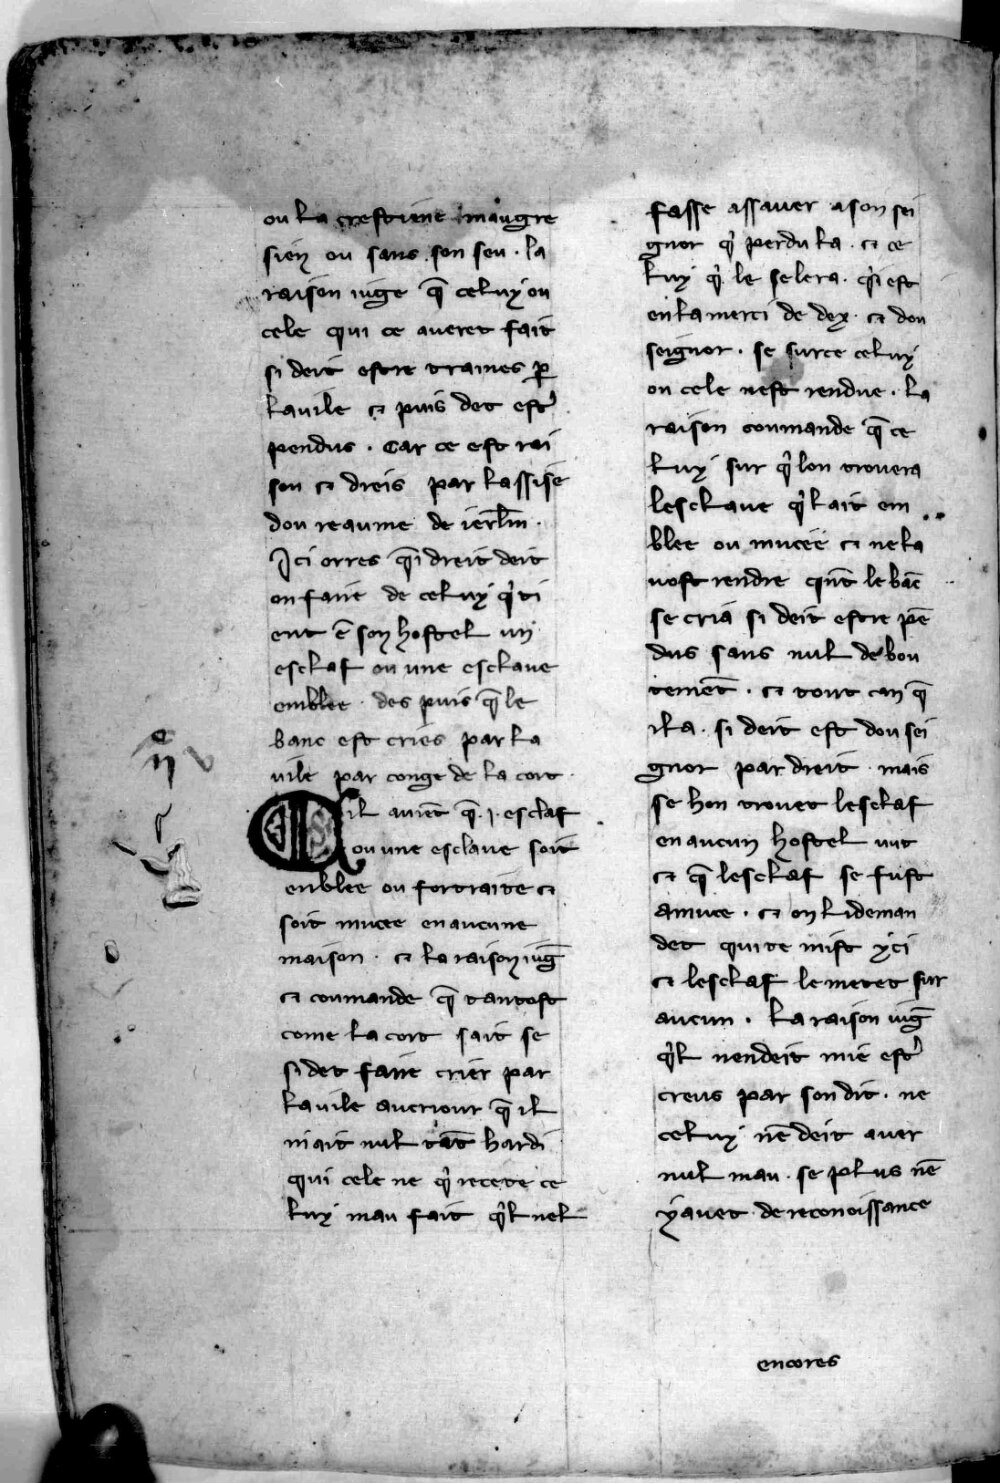 ou la crestiene maugre
sien ou sans son seu · la
raison iuge q̄ celuy ou
cele qui ce averet fait
si deit estre traines ꝑ
la vile ⁊ puis det est͛
pendus · Car ce est rai
son ⁊ dreis par lassise
dou reaume de ierl̄m ·
Ici orres q̄l dreit deit
on faire de celuy q̇ ti
ent ē son hostel un
esclaf ou une esclave
emblee · des puis q̄ le
banc est cries par la
vile par conge de la cort ·
Sil avient q̄ · i · esclaf
ou une esclave soit
enblee ou fortraite ⁊
soit mucee en aucune
maison · ⁊ la raison iuḡ
⁊ coumande q̄ tantost
come la cort sait se
si det faire crier par
la vile au criour q̄ il
ni ait nul tāt hardi
qui cele ne q̇ recete ce
luy mau fait q̇l nel
fasse assaver a son sei
gnor q̇ perdu la · ⁊ ce
luy q̇ le selera · q̇l est
en la merci de dex · ⁊ dou
seignor · se surce celuy
ou cele nest rendue · la
raison coumande q̄ ce
luy sur q̇ lon trovera
lesclave q̇ lait em
blee ou mucee ⁊ ne la
vost rendre qn̄t le bāc
se cria si deit estre pē
dus sans nul debou
temēt · ⁊ tout can q̄
il a · si deit est dou sei
gnor par dreit · mais
se hon trovet lesclaf
en aucun hostel nut
⁊ q̄ lesclaf se fust
amuce · ⁊ on li deman
det qui te mist yci
⁊ lesclaf le metet sur
aucun · la raison iuḡ
q̇l nen deit mie est͛
creus par son dit · ne
celuy nē deit aver
nul mau · se plus nē
y avet de reconoissance
encores